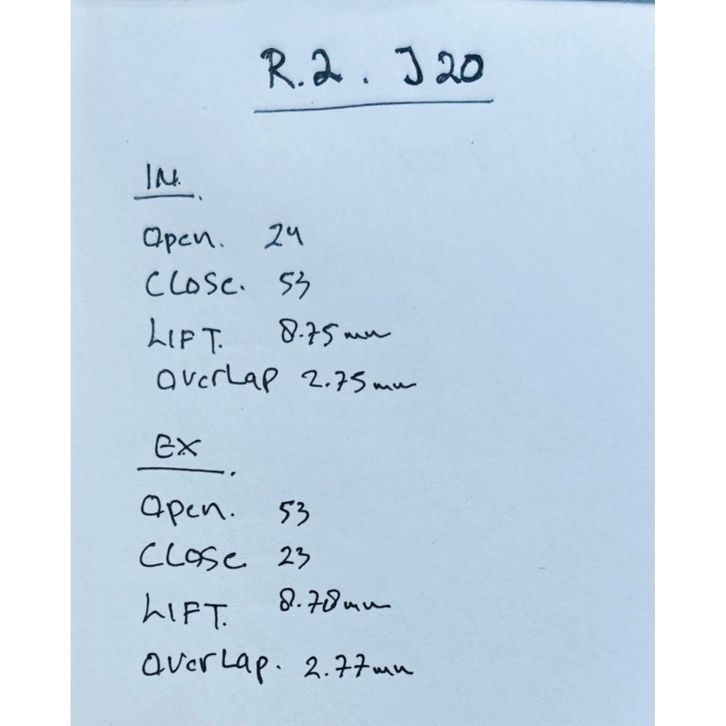 R.2. J20
IN.
Open. 24
CLOSE. 53
LIFT. 8.75mm
OVERLAP 2.75mm
EX.
Open. 53
CLOSE. 23
LIFT. 8.78mm
OVERLAP. 2.77mm